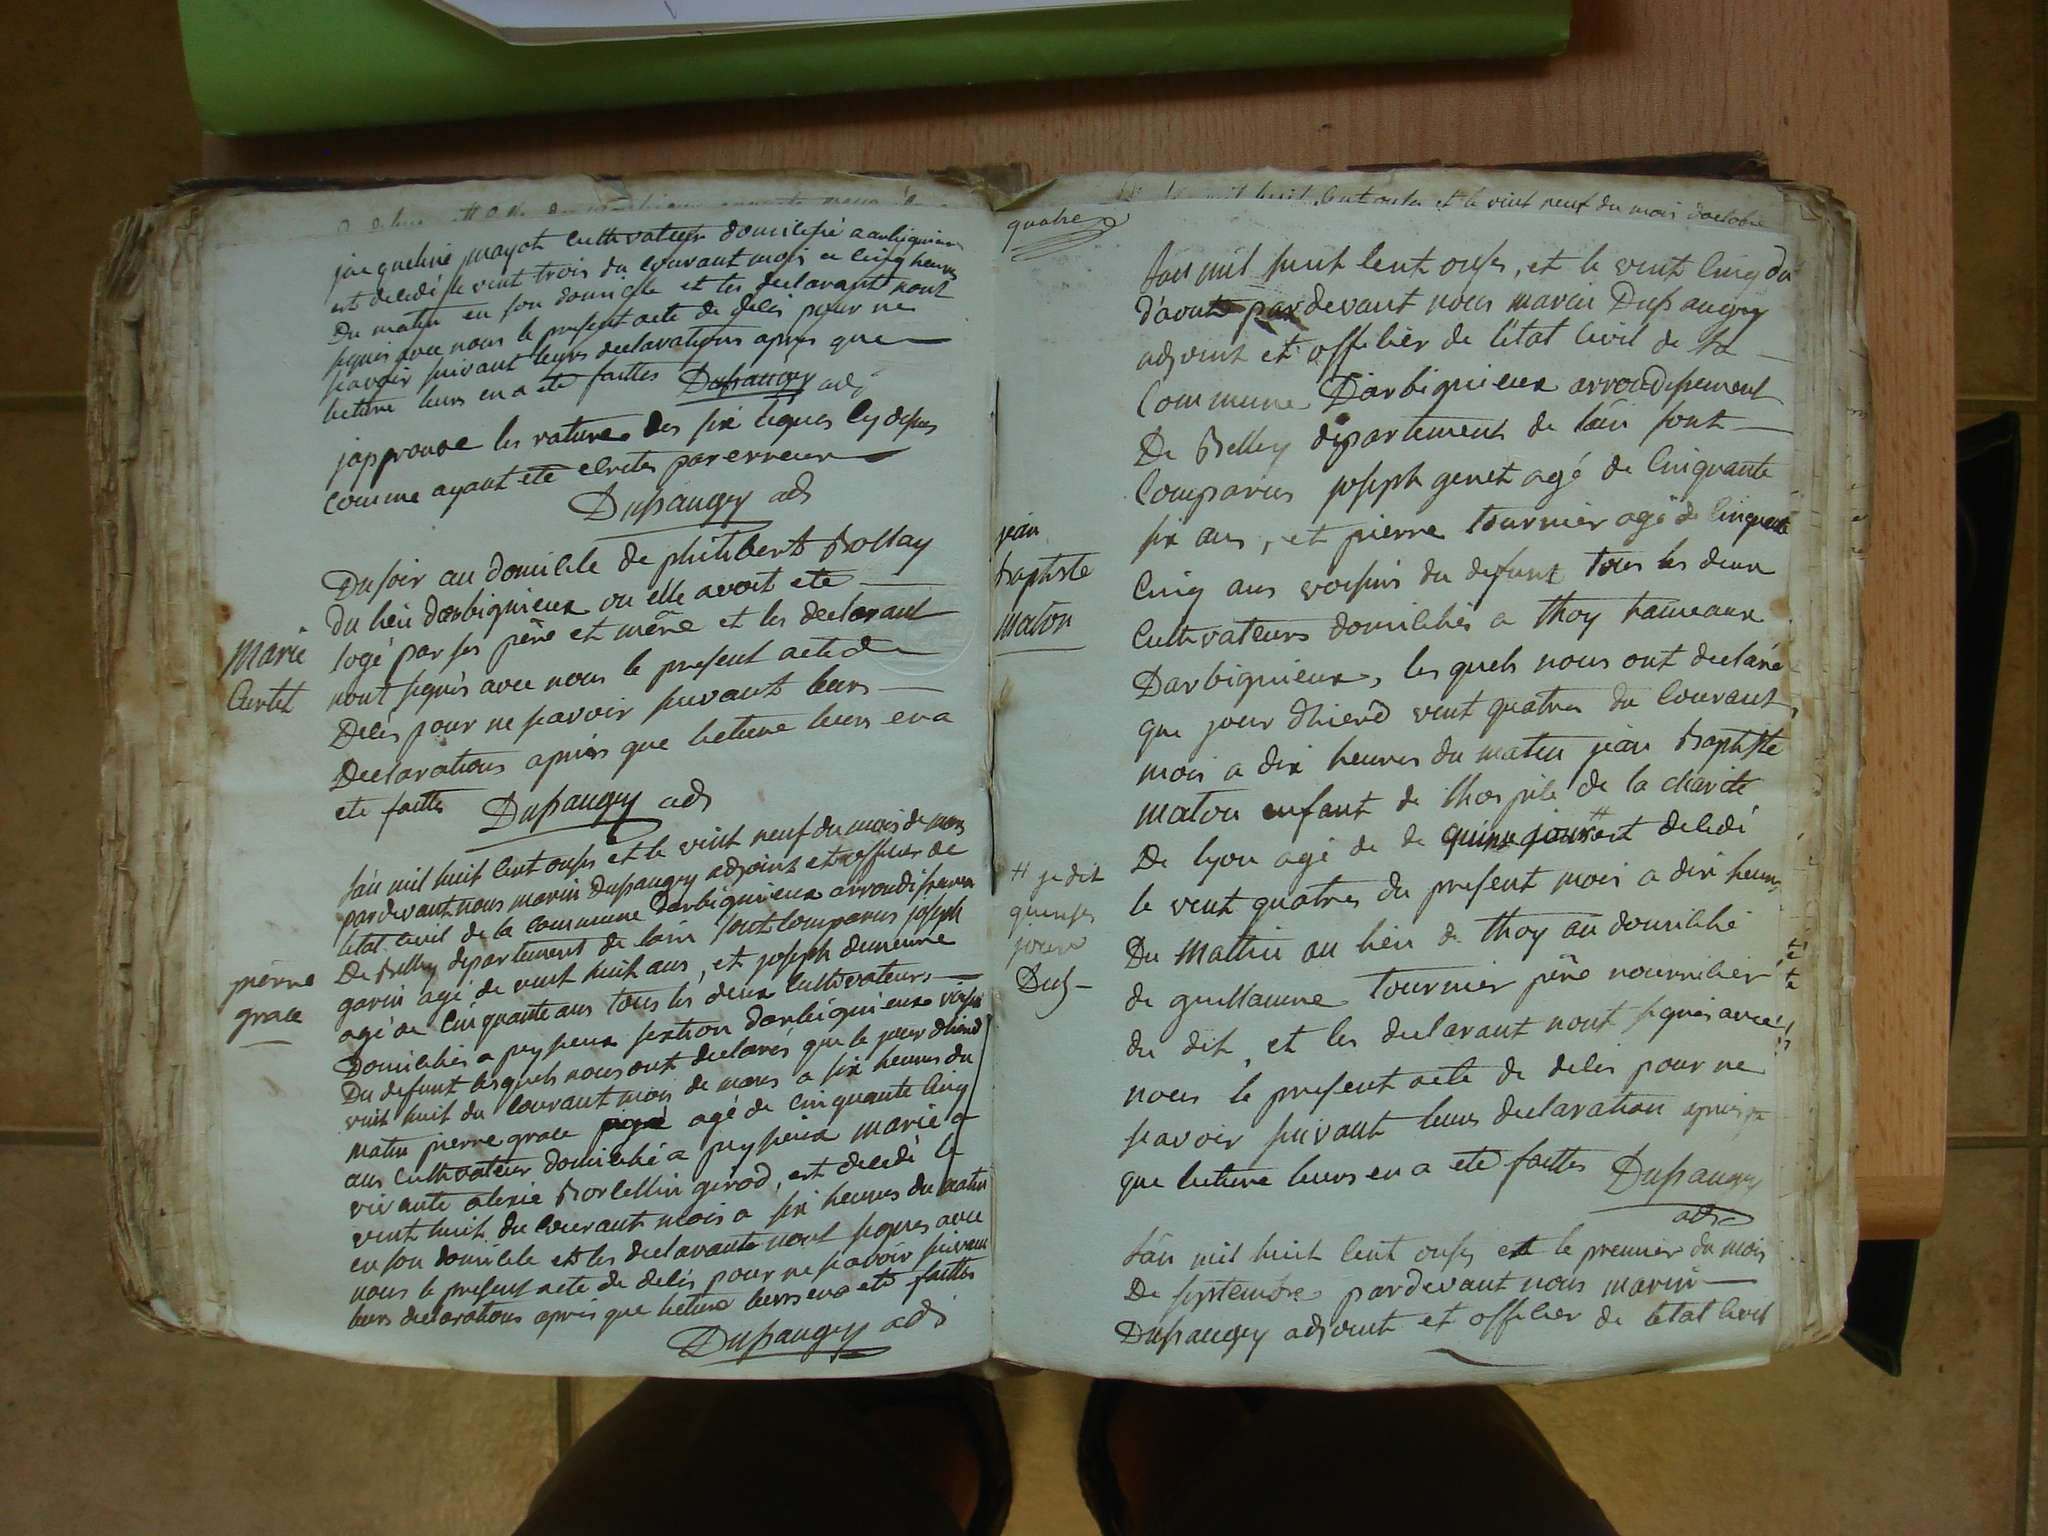 jacqueline mayot cultivateur domicilié a arbignieux
est décédé le vint trois du courant mois a cinq heures
Du matin en son domicile et les declarant nont
signés avec nous le present acte de délés pour ne
scavoir suivant leurs declarations apres que
lecture leurs en a eté faittes Dupaugey adj
japprouve les rature des six lignes cy dessus
Comme ayant eté ecrites par erreur
Dupaugey adj
Marie
Curtet
Du soir au domicile de philibert Rollay
du lieu darbignieux ou elle avoit eté
logé par ses père et mère et les declarant
nont signés avec nous le present acte de
Delés pour ne scavoir suivant leurs
Declarations après que lecture leurs en a
eté faittes Dupaugey adj
pierre
grace
Lan mil huit cent onses et le vint neuf du mois de mars
pardevant nous marin Dupaugey adjoint et officier de
letat civil de la commune Darbignieux arrondissement
De Belley departement de lain sont comparus joseph
garin agé de vint huit ans, et joseph dumeurne
agé de cinquante ans tous les deux cultivateurs
Domiciliés a peysieux section darbignieux voisin
Du defunt lesquels nous ont declarés que le jour dhierd
vint huit du courant mois de mars a six heures du
matin pierre grace agé de cinquante cinq
ans cultivateur domicilié a peysieux marié a
vivante alexie Borcellin girod, est decedé le
vint huit du courant mois a six heures du matin
en son domicile et les declarants nont signés avec
nous le present acte de delés pour ne scavoir suivant
leurs declarations après que lecture leurs en a eté faittes
Dupaugey adj
mil huit cent onses et le vint neuf du mois doctobre
quatre
Lan mil huit cent onses, et le vint cinq du
daout pardevant nous marin Dupaugey
adjoint et officier de létat civil de la
Commune Darbignieux arrondissement
De Belley département de lain sont
Comparus joseph genet agé de cinquante
six ans, et pierre tournier agé de cinquante
Cinq ans voisins du defunt tous les deux
Cultivateurs domiciliés a thoy hameaux
Darbignieux, lesquels nous ont declaré
que jour dhierd vint quatres du courant
mois a dix heures du matin jean baptiste
maton enfant de lhospile de la charité
De lyon agé de de quinse jours # est decedé
le vint quatres du present mois a dix heures
Du mathin au lieu de thoy au domicilié
de guillaume tournier père nourricier
du dit, et les declarant nont signés avec
nous le present acte de delés pour ne
scavoir suivant leurs declaration apries
que lecture leurs en a eté faittes Dupaugey
adj
jean
baptiste
maton
# je dit
quinses
jours
Dup
Lan mil huit cent onses et le premier du mois
De septembre pardevant nous marin
Dupaugey adjoint et officier de letat civil